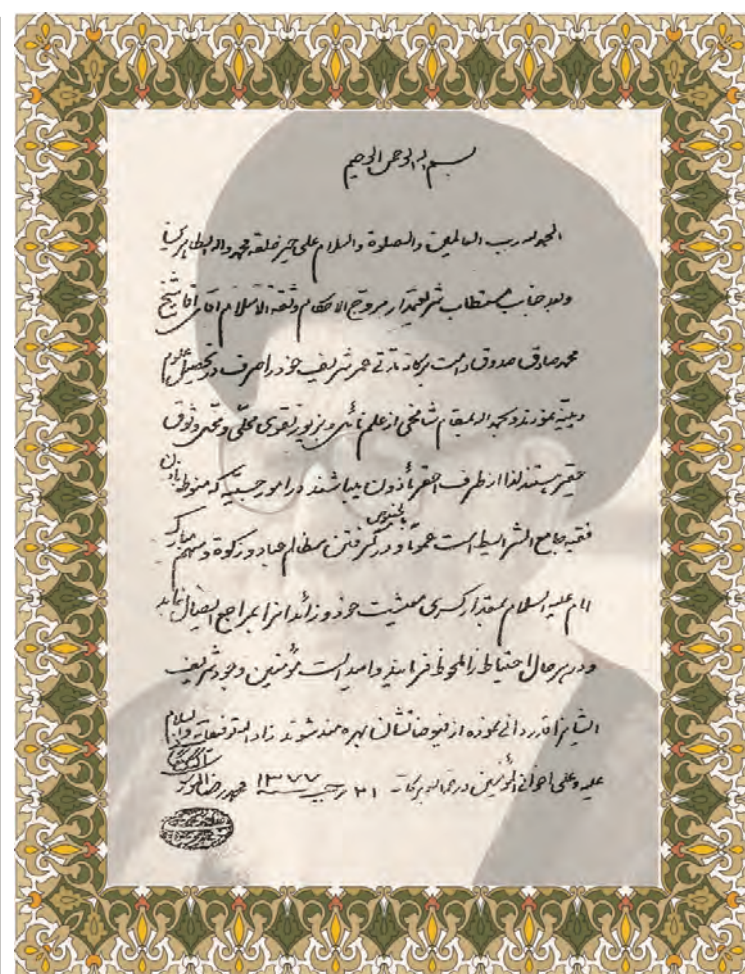 بسم الله الرحمن الرحیم
الحمد لله رب العالمین والصلوة والسلام علی خیر خلقه محمد واله الطاهرین
وبعد جناب مستطاب شریعتمدار مروج الاحکام وثقة الاسلام اقای اقا شیخ
محمد صادق صدوق دامت برکاته مدتی عمر شریف خود را صرف در تحصیل علوم
دینیه نموده و بحمد الله بمقام شامخی از علم نائل و بزیور تقوی محلی و وثوق
حقیر هستند لذا از طرف احقر مأذون میباشند در امور حسبیه که منوط باذن
فقیه جامع الشرایط است عموماً و بالخصوص در گرفتن مظالم عباد و زکوة و سهم مبارک
امام علیه السلام بمقدار کسری معیشت خود و زائد انرا بمراجع ایصال نماید
و در هر حال احتیاط را ملحوظ فرمایند و امید است مؤمنین وجود شریف
ایشانرا قدردانی نموده از فیوضاتشان بهره مند شوند زاد الله توفیقاته والسلام
علیه وعلی اخوانی المؤمنین ورحمة الله وبرکاته ۲۱ رجب ۱۳۷۷ محمد رضا الموسوی